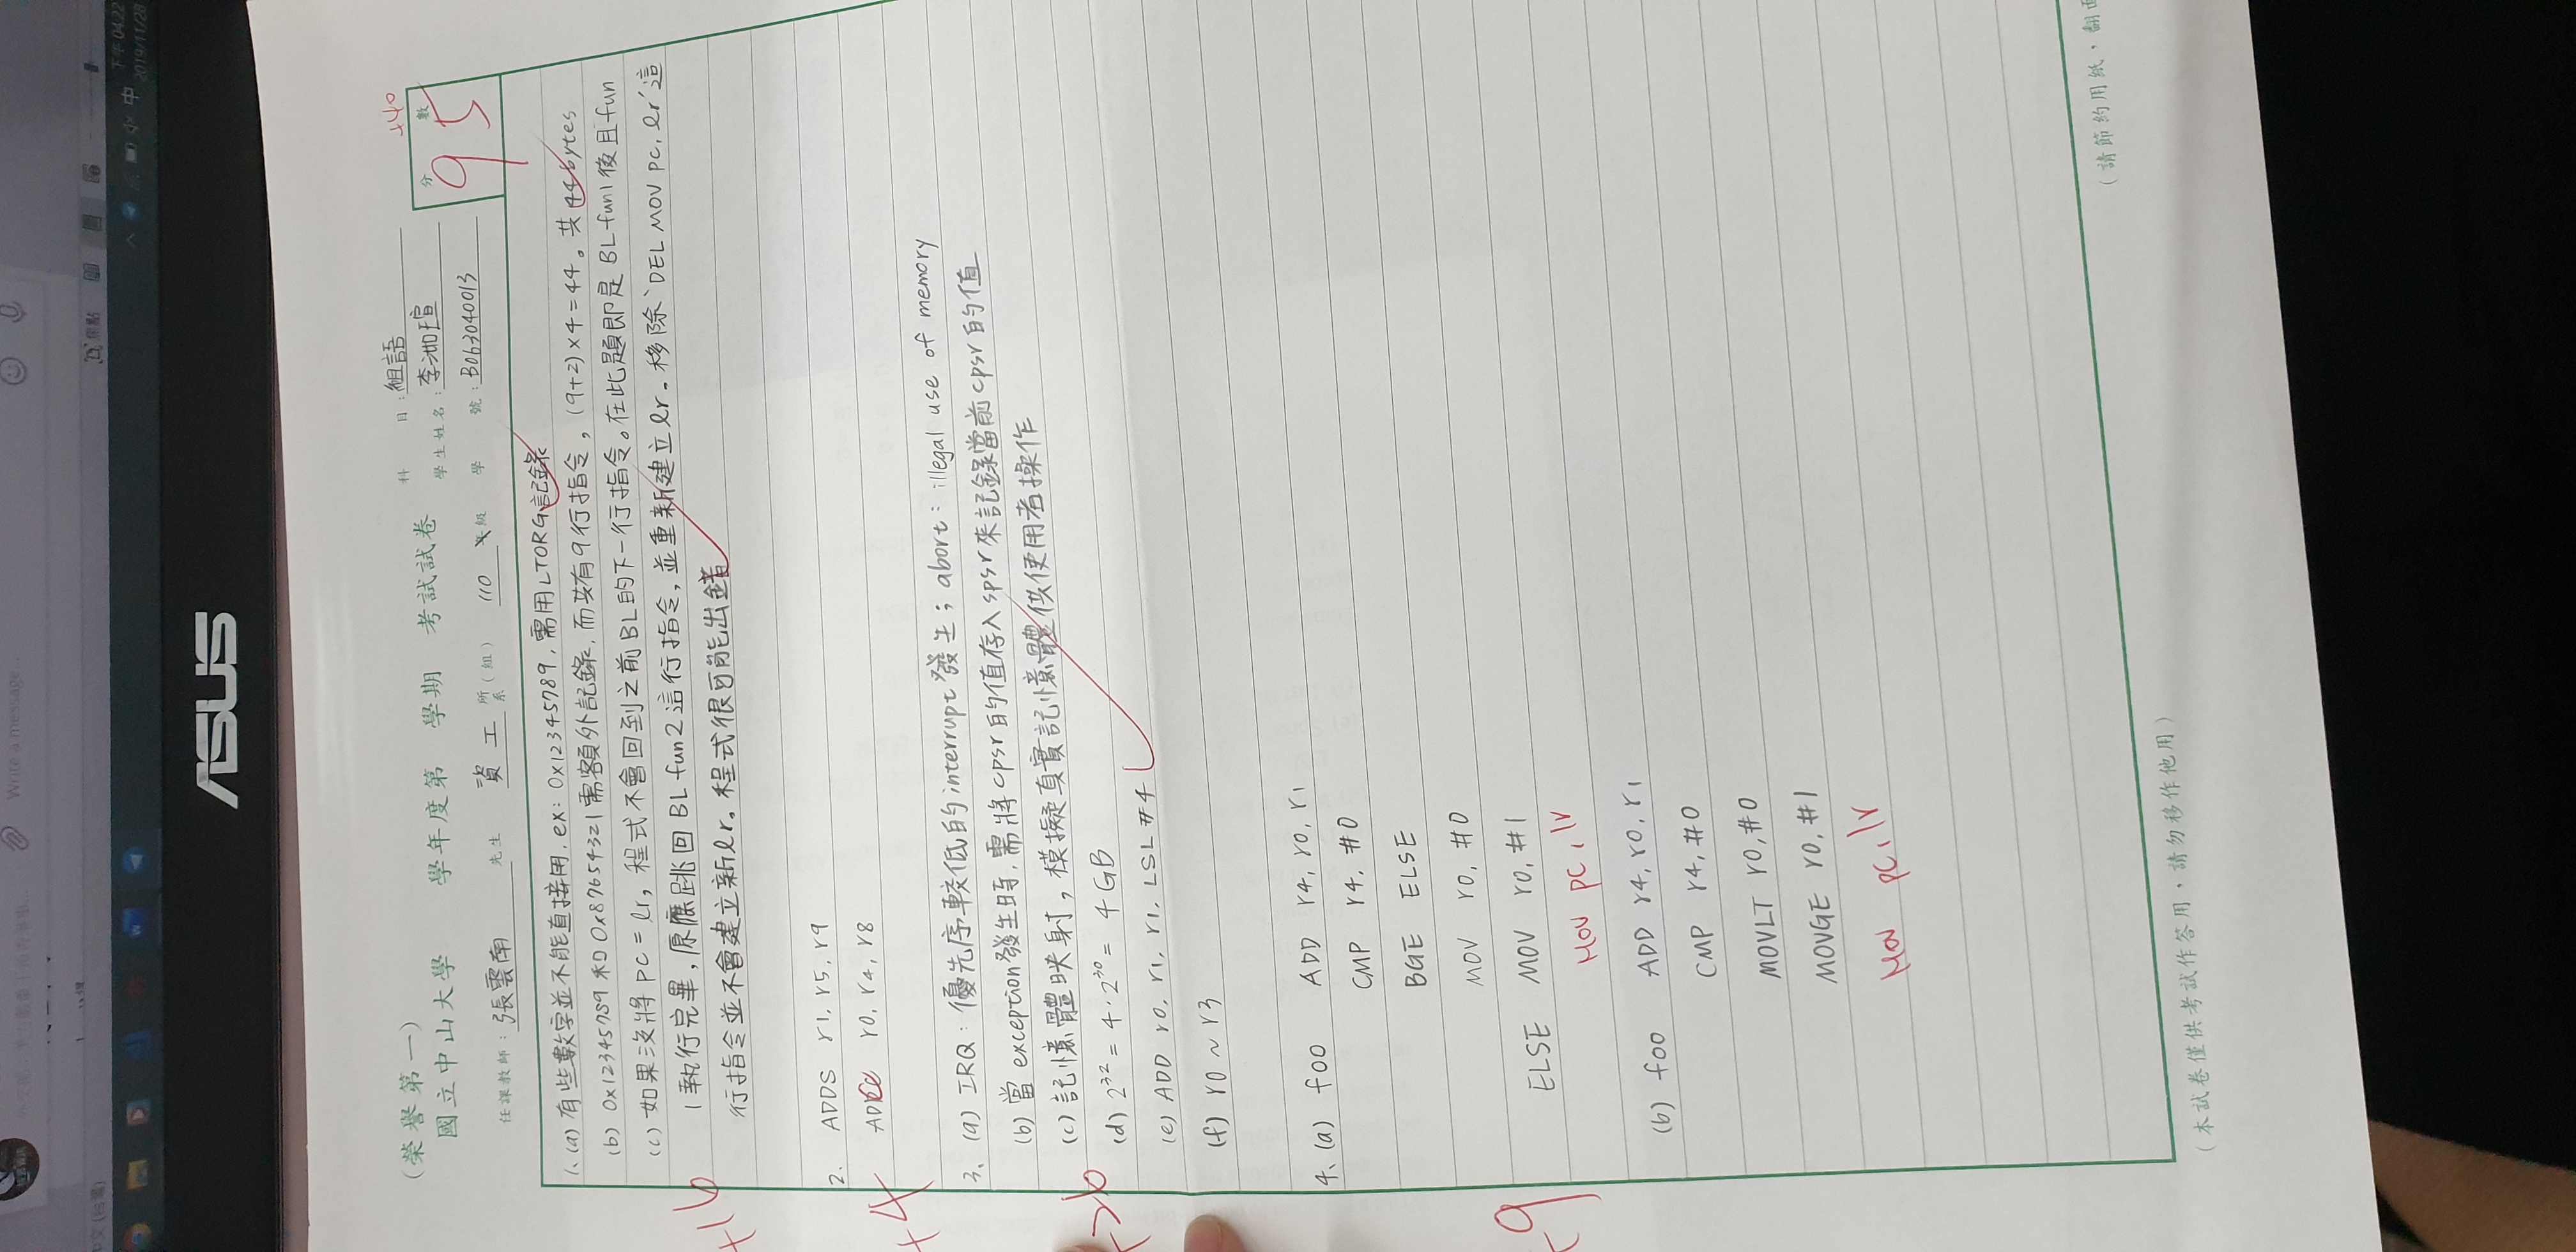 Write a message...
中文 (台灣)
焦點
中
下午 04:22
2019/11/28
ASUS
(榮譽第一)
國立中山大學 學年度第 學期 考試試卷
科 目: 組語
學生姓名:
學 號: B063040013
任課教師: 張雲南 先生 資工 所系(組) 110 級
+40
分 數
95
1、(a) 有些數字並不能直接用, ex: 0x12345789, 需用LTORG記錄
(b) 0x12345789 和 0x87654321 需額外記錄, 而共有9行指令, (9+2)×4=44。共44bytes
(c) 如果沒將 pc = lr, 程式不會回到之前BL的下一行指令。在此題即是 BL fun1 後且 fun
1執行完畢, 原應跳回 BL fun2 這行指令, 並重新建立lr。移除'DEL MOV pc, lr'這
行指令並不會建立新lr。程式很可能出錯
+16
2. ADDS r1, r5, r9
r0, r4, r8
+4
3、(a) IRQ: 優先序較低的interrupt發生; abort: illegal use of memory
(b) 當exception發生時, 需將cpsr的值存入spsr來記錄當前cpsr的值
(c) 記憶體映射, 模擬真實記憶體供使用者操作
(d) 2³² = 4·2³⁰ = 4GB
(e) ADD r0, r1, r1, LSL #4
(f) r0 ~ r3
4、(a) foo ADD r4, r0, r1
CMP r4, #0
BGE ELSE
MOV r0, #0
ELSE MOV r0, #1
MOV pc, lr
9
(b) foo ADD r4, r0, r1
CMP r4, #0
MOVLT r0, #0
MOVGE r0, #1
MOV pc, lr
(請節約用紙,翻面
(本試卷僅供考試作答用,請勿移作他用)